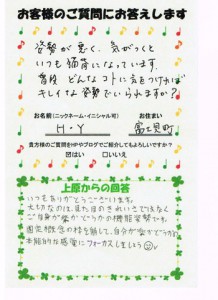 お客様のご質問にお答えします
姿勢が悪く、気がつくと
いつも猫背になっています。
普段 どんなコトに気をつければ
キレイな姿勢でいられますか?
お名前(ニックネーム・イニシャル可)
お住まい
H・Y
富士見町
貴方様のご質問をHPやブログでご紹介してもよろしいですか?
☑はい □いいえ
上原からの回答
いつもありがとうございます。
大切なのは、見た目のきれいさではなく
ご自身が楽かどうかの機能姿勢です。
固定概念の枠を越えて、自分が楽かどうかの
本能的な感覚にフォーカスしましょう